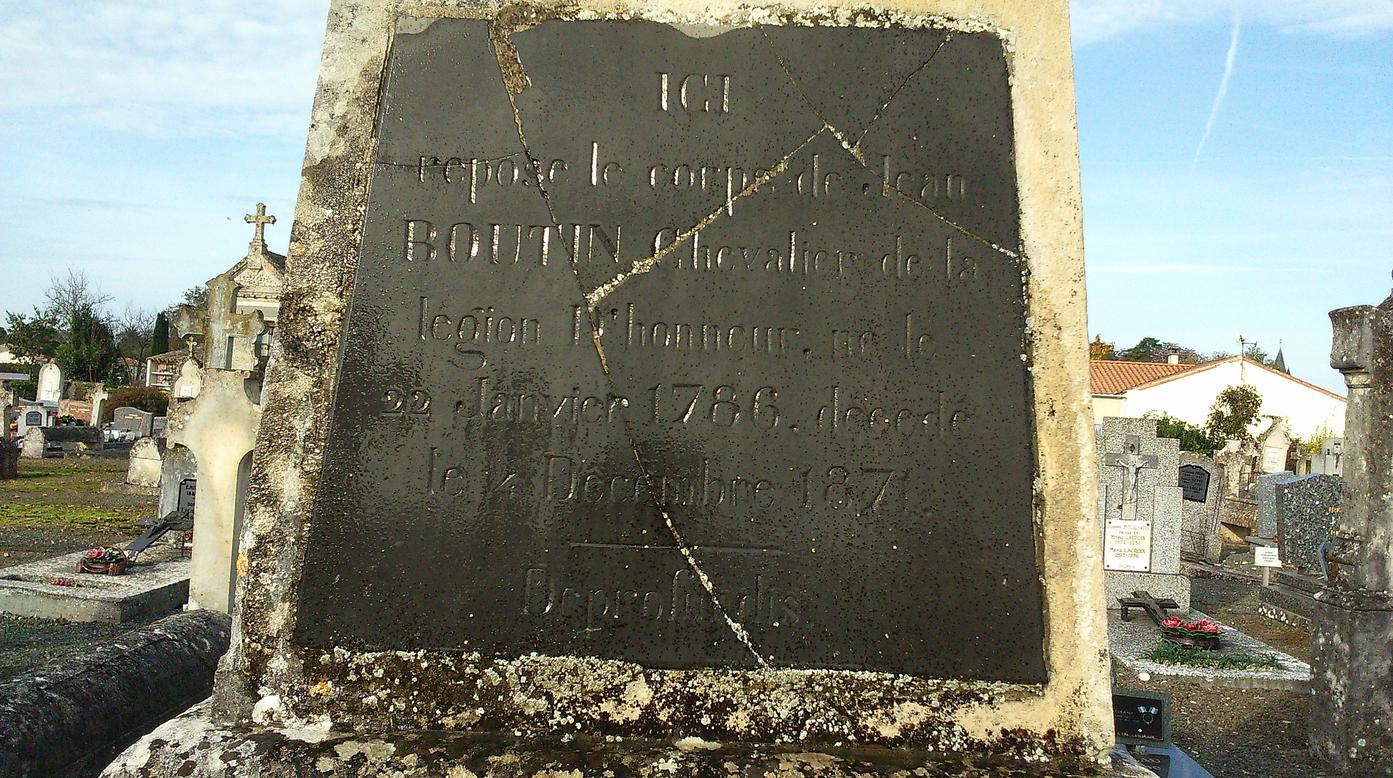 ICI
repose le corps de Jean
BOUTIN Chevalier de la
legion D'honneur, né le
22 Janvier 1786. décédé
le 4 Décembre 1871
Deprofundis